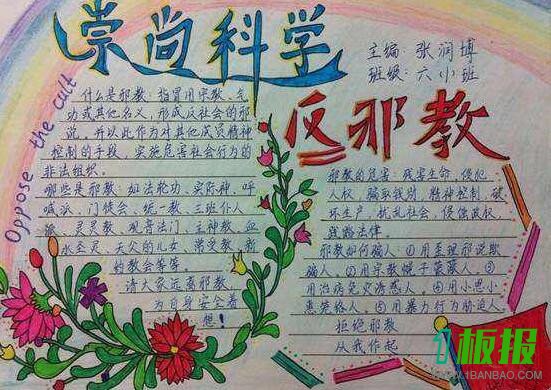 崇尚科学
主编 张润博
班级: 六小班
Oppose the cult
什么是邪教: 指冒用宗教、气
功或其他名义, 形成反社会的邪
说, 并以此作为对其他成员精神
控制的手段, 实施危害社会行为的
非法组织。
哪些是邪教: 如法轮功、实际神、呼
喊派、门徒会、统一教、三班仆人
派、灵灵教、观音法门、主神教、血
水圣灵、天父的儿女、常受教、新
的教会等等。
请大家远离邪教,
为自身安全着
想!
反邪教
邪教的危害: 残害生命, 侵犯
人权, 骗取钱财, 精神控制, 破
坏生产, 扰乱社会, 侵蚀政权
法律。
邪教如何骗人: ①用歪理邪说欺
骗人, ②用宗教幌子蒙蔽人, ③
用治病免灾诱惑人, ④用小恩小
惠笼络人, ⑤用暴力行为胁迫人。
拒绝邪教
从我作起
板报
WWW.1BANBAO.COM